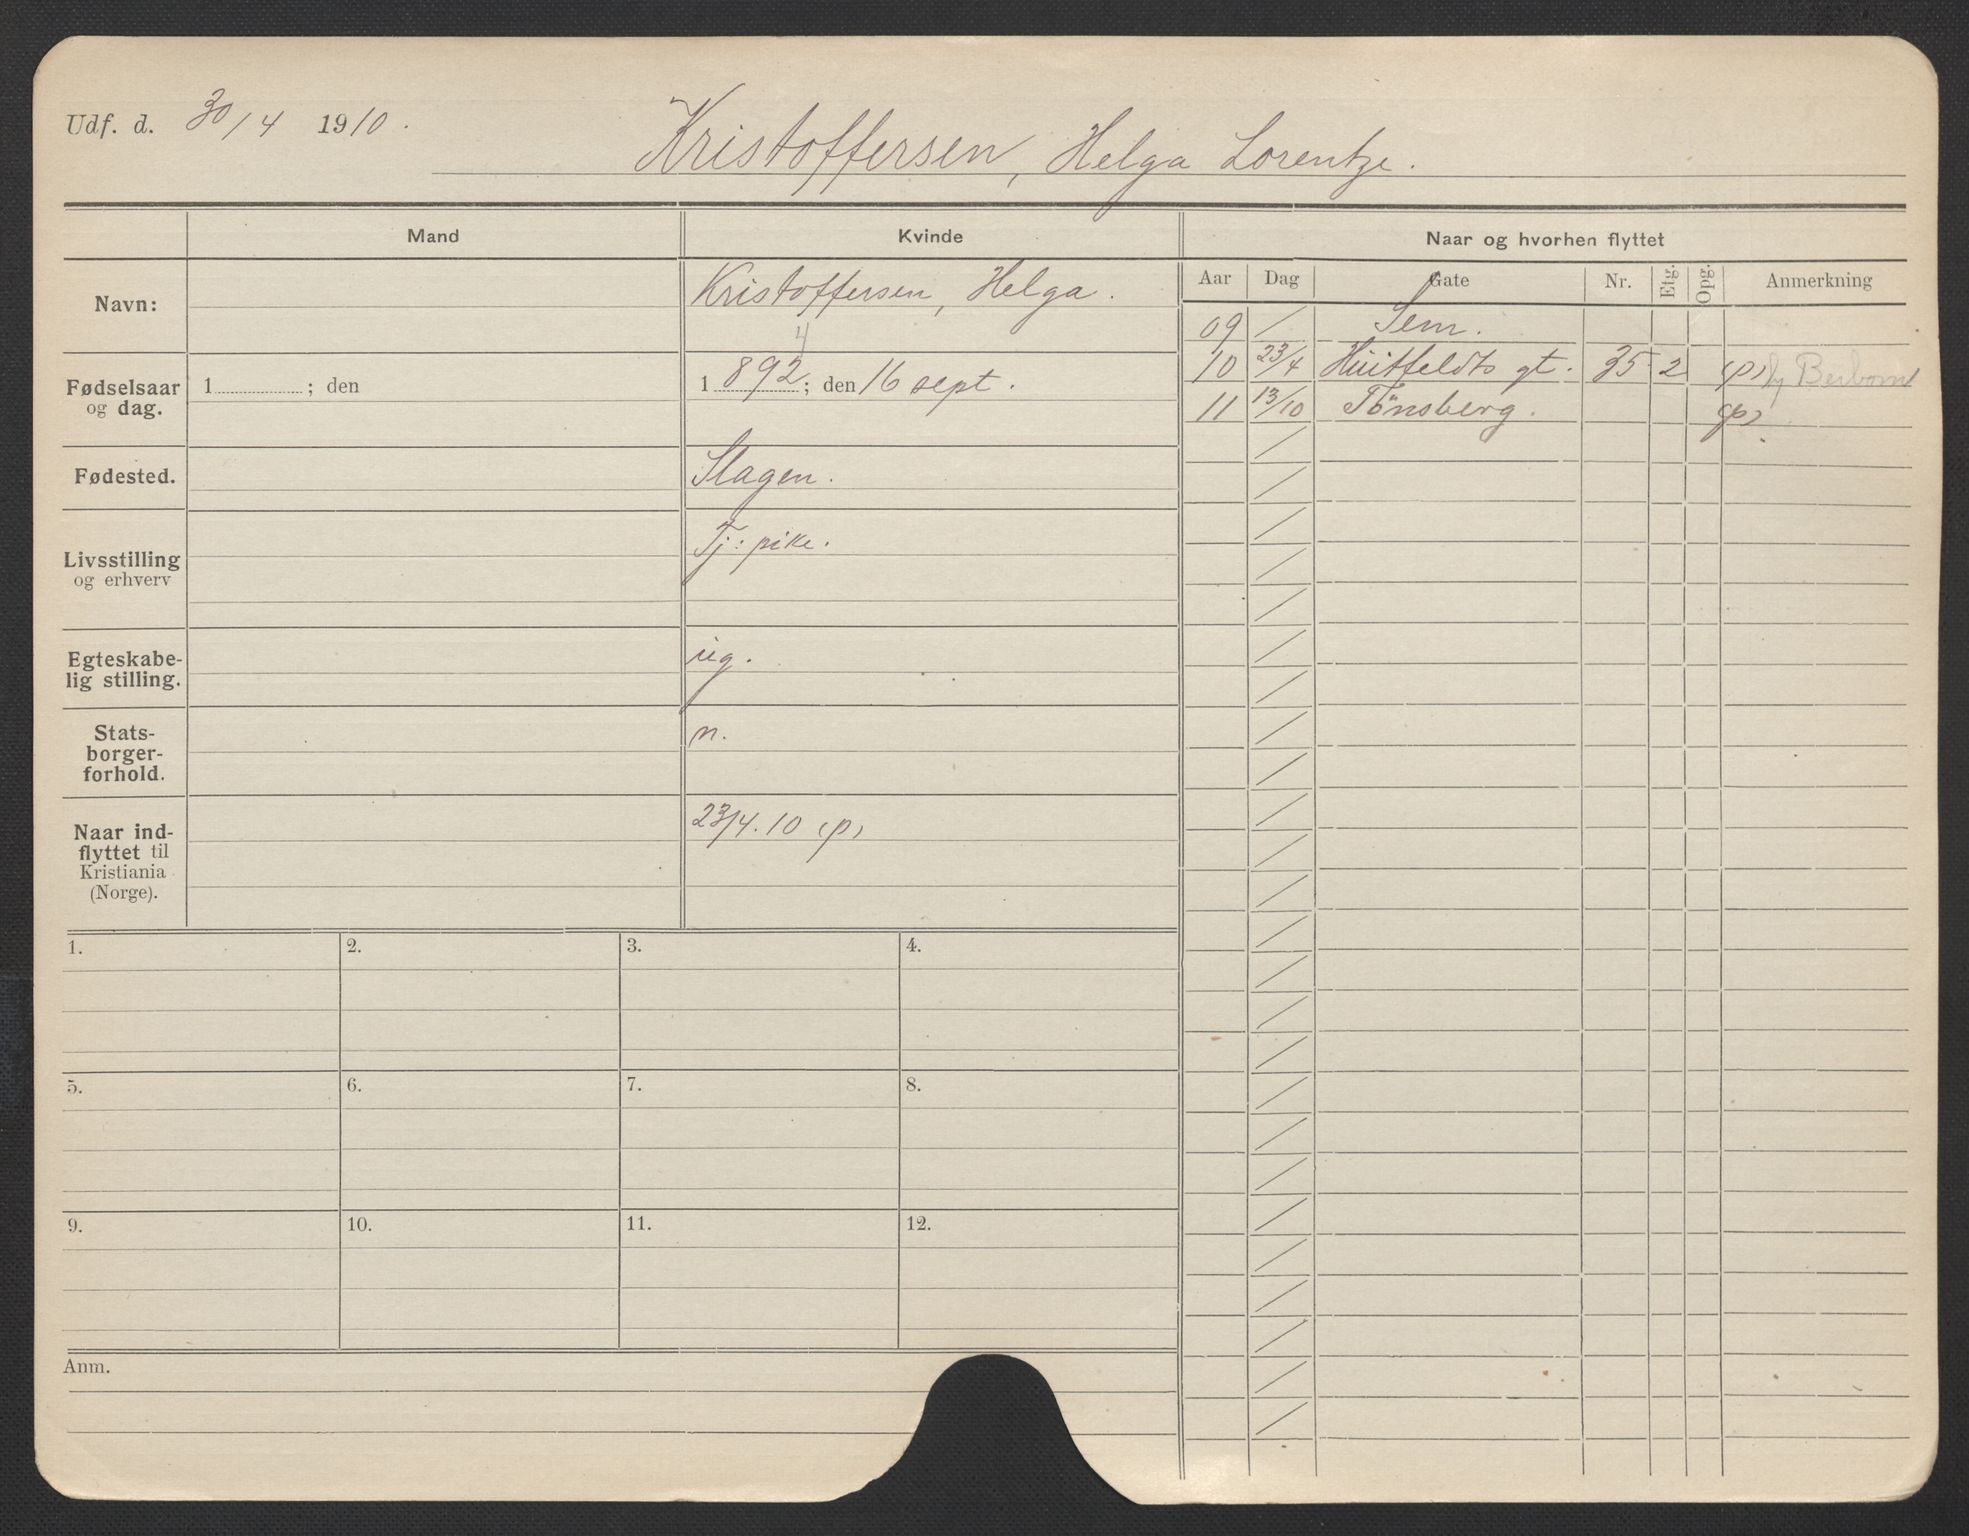 Udf. d. 30/4 1910.
Kristoffersen, Helga Lorentze.
Mand
Kvinde
Naar og hvorhen flyttet
Navn:
Kristoffersen, Helga.
Aar Dag Gate Nr. Etg. Opg. Anmerkning
09 / Sem.
4
10 23/4 Huitfeldts gt. 35 2 (p)
11 13/10 Tönsberg. (p)
Fødselsaar
og dag.
1 ; den
1 892 ; den 16 sept.
Fødested.
Slagen.
Livsstilling
og erhverv
Tj: pike.
Egteskabe-
lig stilling.
ug.
Stats-
borger-
forhold.
n.
Naar ind-
flyttet til
Kristiania
(Norge).
23/4. 10 (p)
1. 2. 3. 4.
5. 6. 7. 8.
9. 10. 11. 12.
Anm.